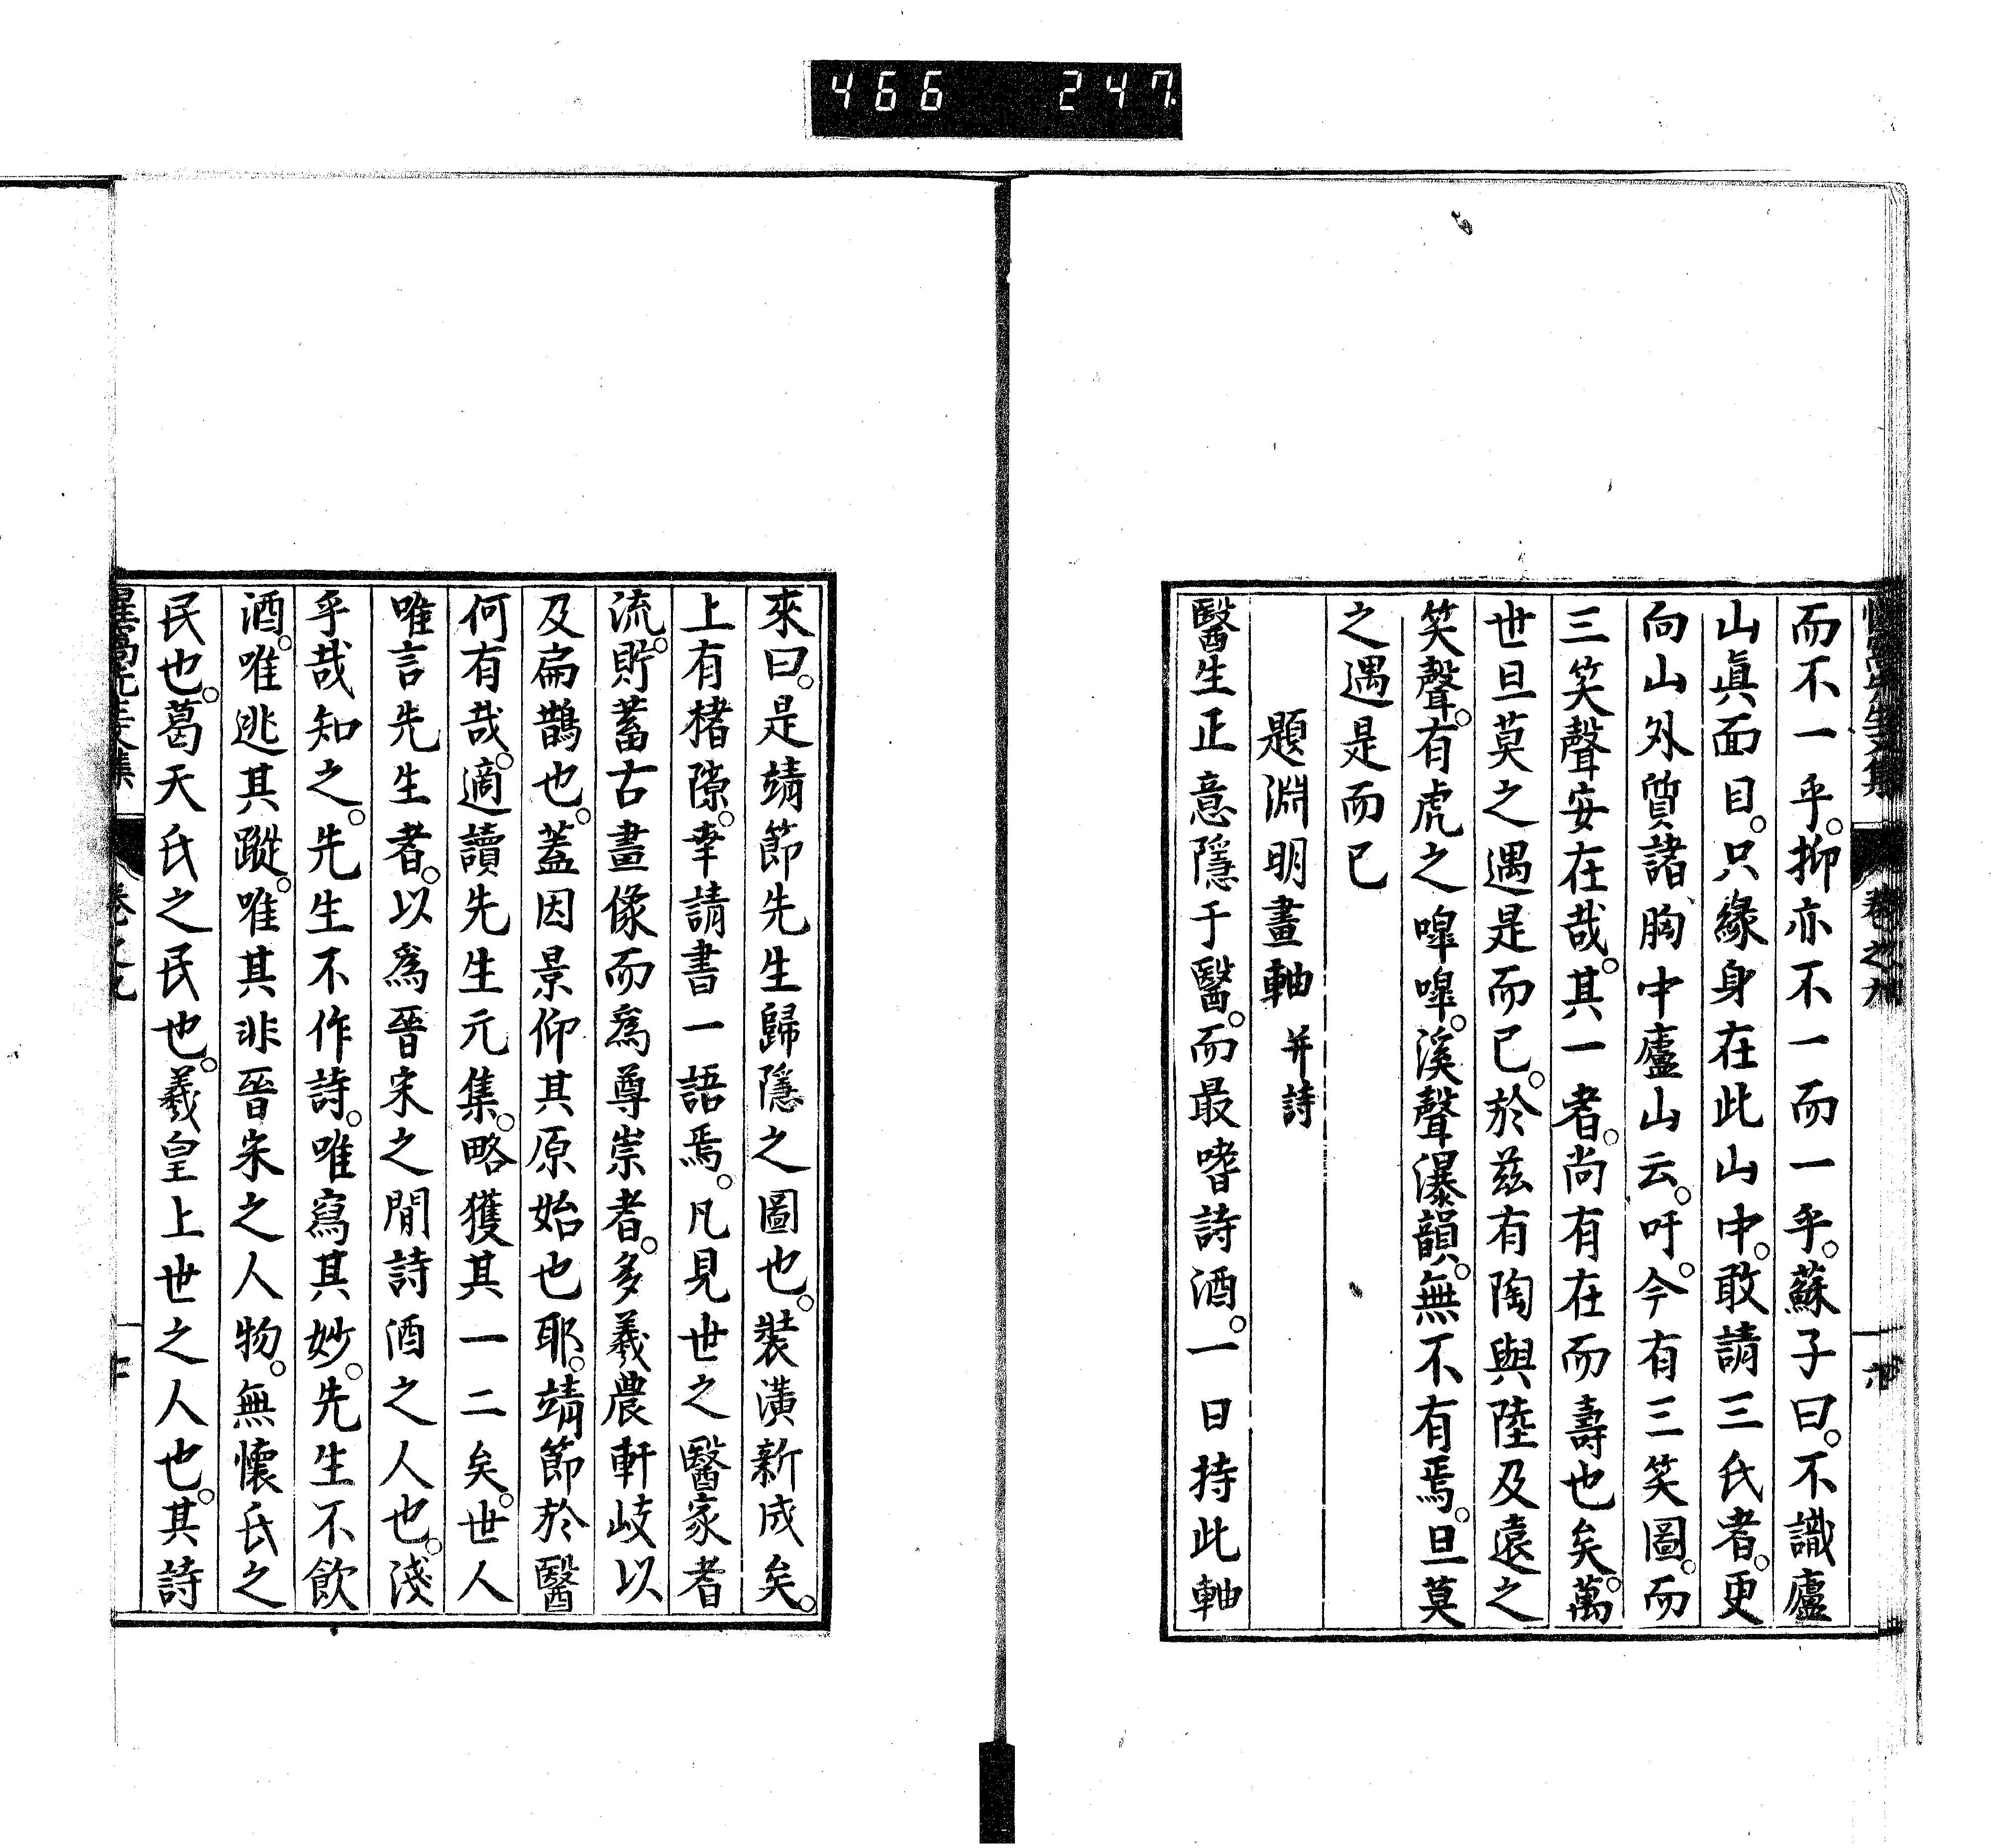 466 247
而不一乎。抑亦不一而一乎。蘇子曰。不識廬
山眞面目。只緣身在此山中。敢請三氏者。更
向山外質諸胸中廬山云。吁。今有三笑圖。而
三笑聲安在哉。其一者。尚有在而壽也矣。萬
世旦莫之遇是而已。於茲有陶與陸及遠之
笑聲。有虎之嘷嘷。溪聲瀑韻。無不有焉。旦莫
之遇是而已
題淵明畫軸 并詩
醫生正意隱于醫。而最嗜詩酒。一日持此軸
來曰。是靖節先生歸隱之圖也。裝潢新成矣。
上有楮隙。幸請書一語焉。凡見世之醫家者
流。貯蓄古畫像而爲尊崇者。多羲農軒岐以
及扁鵲也。蓋因景仰其原始也耶。靖節於醫
何有哉。適讀先生元集。略獲其一二矣。世人
唯言先生者。以爲晉宋之間詩酒之人也。淺
乎哉知之。先生不作詩。唯寫其妙。先生不飲
酒。唯逃其蹤。唯其非晉宋之人物。無懷氏之
民也。葛天氏之民也。羲皇上世之人也。其詩